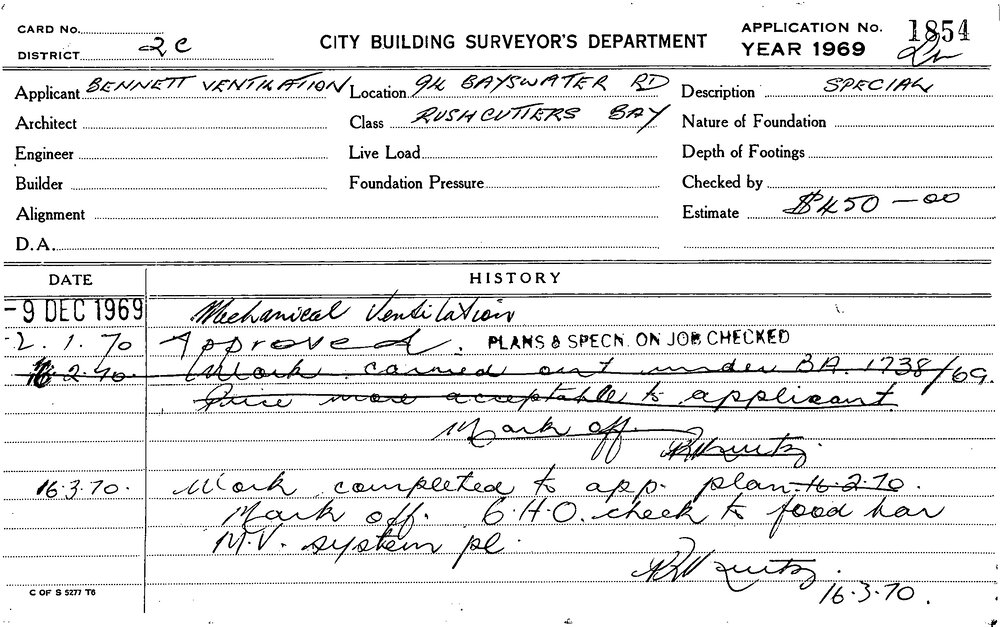 CARD No.
DISTRICT 2C
CITY BUILDING SURVEYOR'S DEPARTMENT
APPLICATION No. 1854
YEAR 1969
Applicant BENNETT VENTILATION Location 94 BAYSWATER RD Description SPECIAL
Architect Class RUSHCUTTERS BAY Nature of Foundation
Engineer Live Load Depth of Footings
Builder Foundation Pressure Checked by
Alignment Estimate $450-00
D.A.
DATE HISTORY
-9 DEC 1969 Mechanical Ventilation
2.1.70 Approved. PLANS & SPECN. ON JOB CHECKED
16.2.70 Work carried out under BA. 1738/69.
Price more acceptable to applicant
Mark off.
16.3.70. Work completed to app. plan 16.2.70.
Mark off. C.H.O. check to food bar
M.V. system pl.
16.3.70.
C OF S 5277 T6